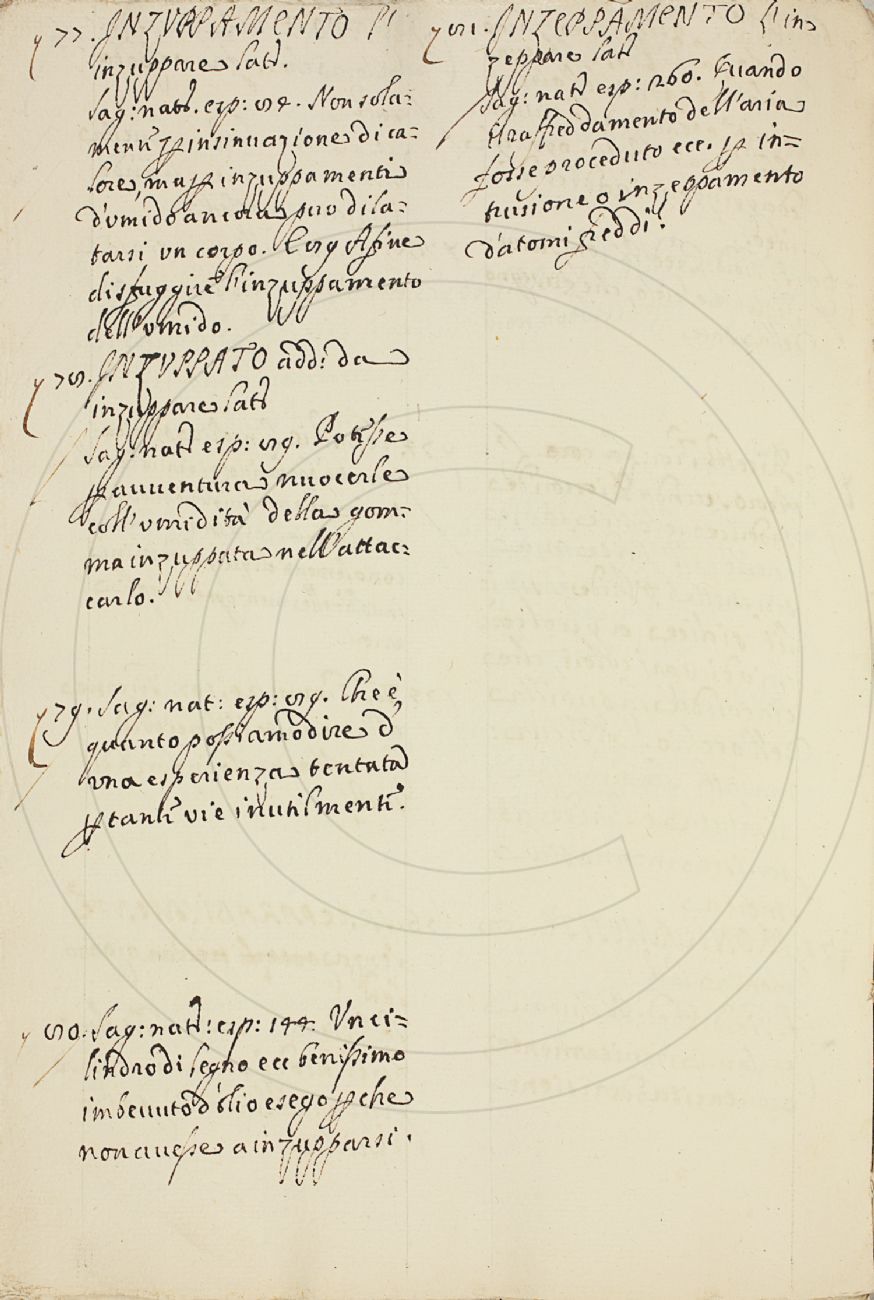 77. INZUPPAMENTO L'
inzuppare Lat.
Sag: nat. esp: 84. Non sola=
ment̃ ꝑ insinuazione di ca=
lore, ma ꝑ inzuppamenti
d'umido ancora può dila=
tarsi un corpo. E 189 Afine
disfuggire l'inzuppamento
dell'umido.
78. INZUPPATO add: da
inzuppare Lat.
Sag: nat. esp: 89. Potesse
ꝑ avventura nuocerle
coll'umidità della gom=
ma inzuppata nell'attac=
carlo.
79. Sag: nat: esp: 89. Che è
quanto possiamo dire d'
una esperienza tentata
ꝑ tant̃ vie inutilment̃.
80. Sag: nat: esp: 144. Un ci=
lindro di legno ecc benissimo
imbevuto d'olio e sego ꝑche
non avesse a inzupparsi.
81. INZEPPAMENTO L'in
zeppare Lat.
Sag: nat. esp: 260. Quando
il raffreddamento dell'aria
fosse proceduto ecc. ꝑ in=
trusione o inzeppamento
d'atomi freddi.